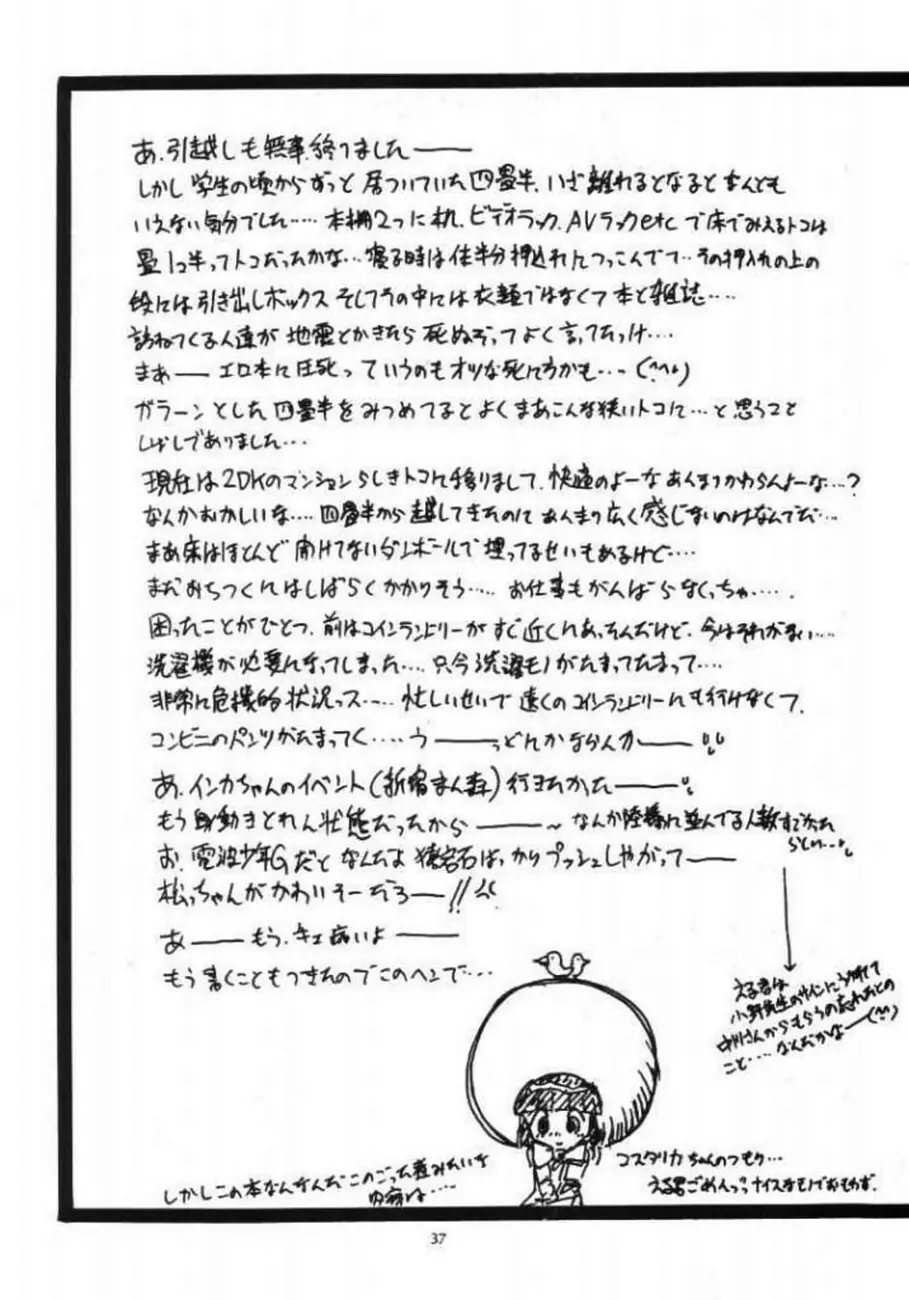 あ、引越しも無事、終りました——
しかし学生の頃からずっと居ついていた四畳半、いざ離れるとなるとなんとも
いえない気分でした……本棚2つに机、ビデオラック、AVラックetcで床でみえるトコは
畳1つ半ってトコだったかな…寝る時は体半分押込れにつっこんでて…その押入れの上の
段には引き出しボックスそしてその中には衣類ではなくて本と雑誌……
訪ねてくる人達が地震とかきたら死ぬぞってよく言ってたっけ……
まあ——エロ本に圧死っていうのもオツな死に方かも…
ガラーンとした四畳半をみつめてるとよくまあこんな狭いトコに…と思うこと
しばしでありました…
現在は2DKのマンションらしきトコに移りまして、快適のよーなあんまりかわらんよーな…?
なんかおかしいな……四畳半から越してきたのにあんまり広く感じないのはなんでだ…
まあ床はほとんど開けてないダンボールで埋ってるせいもあるけど……
まだおちつくにはしばらくかかりそう……お仕事もがんばらなくっちゃ……
困ったことがひとつ、前はコインランドリーがすぐ近くにあったんだけど、今はそれがない……
洗濯機が必要になってしまった……只今洗濯モノがたまってたまって……
非常に危機的状況っス……忙しいせいで遠くのコインランドリーにも行けなくて、
コンビニのパンツがたまってく……う——っどんかならんか——
あ、インカちゃんのイベント(新宿まんが森)行きたかった——
もう身動きとれん状態だったから——〜なんか陸橋に並んでる人数すごかった
らしい…
お、電波少年Gだとなんだよ猿岩石ばっかりプッシュしやがって——
松っちゃんがかわいそーだろ——!!
あ——もう、キェ病いよ——
もう書くこともつきたのでこのヘンで…
える君は
小野先生のサインにうかれて
さんからもらうの忘れたとの
こと……なんだかな—(^^)
コスタリカちゃんのつもり…
える君ごめんっっナイスなモノでおもわず、
しかしこの本なんなんだこのごった煮みたいな
内容は……
37